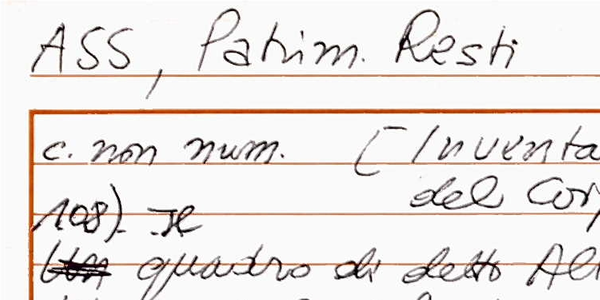 ASS, Patrim. Resti
c. non num. [Inventa
del Corp
108). Il
quadro di detto Al